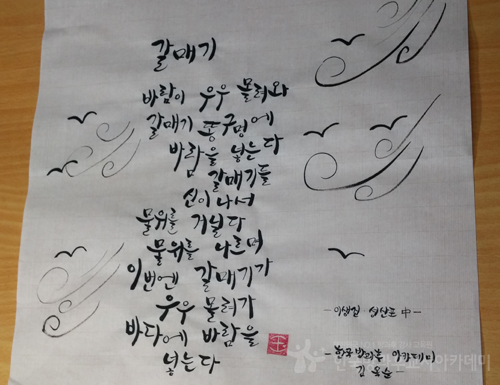 갈매기
바람이 우우 몰려와
갈매기 똥구멍에
바람을 넣는다
갈매기들
신이 나서
물위를 거닐다
물위를 나르며
이번엔 갈매기가
우우 몰려가
바다에 바람을
넣는다
-이생진 십산도 中-
아카데미